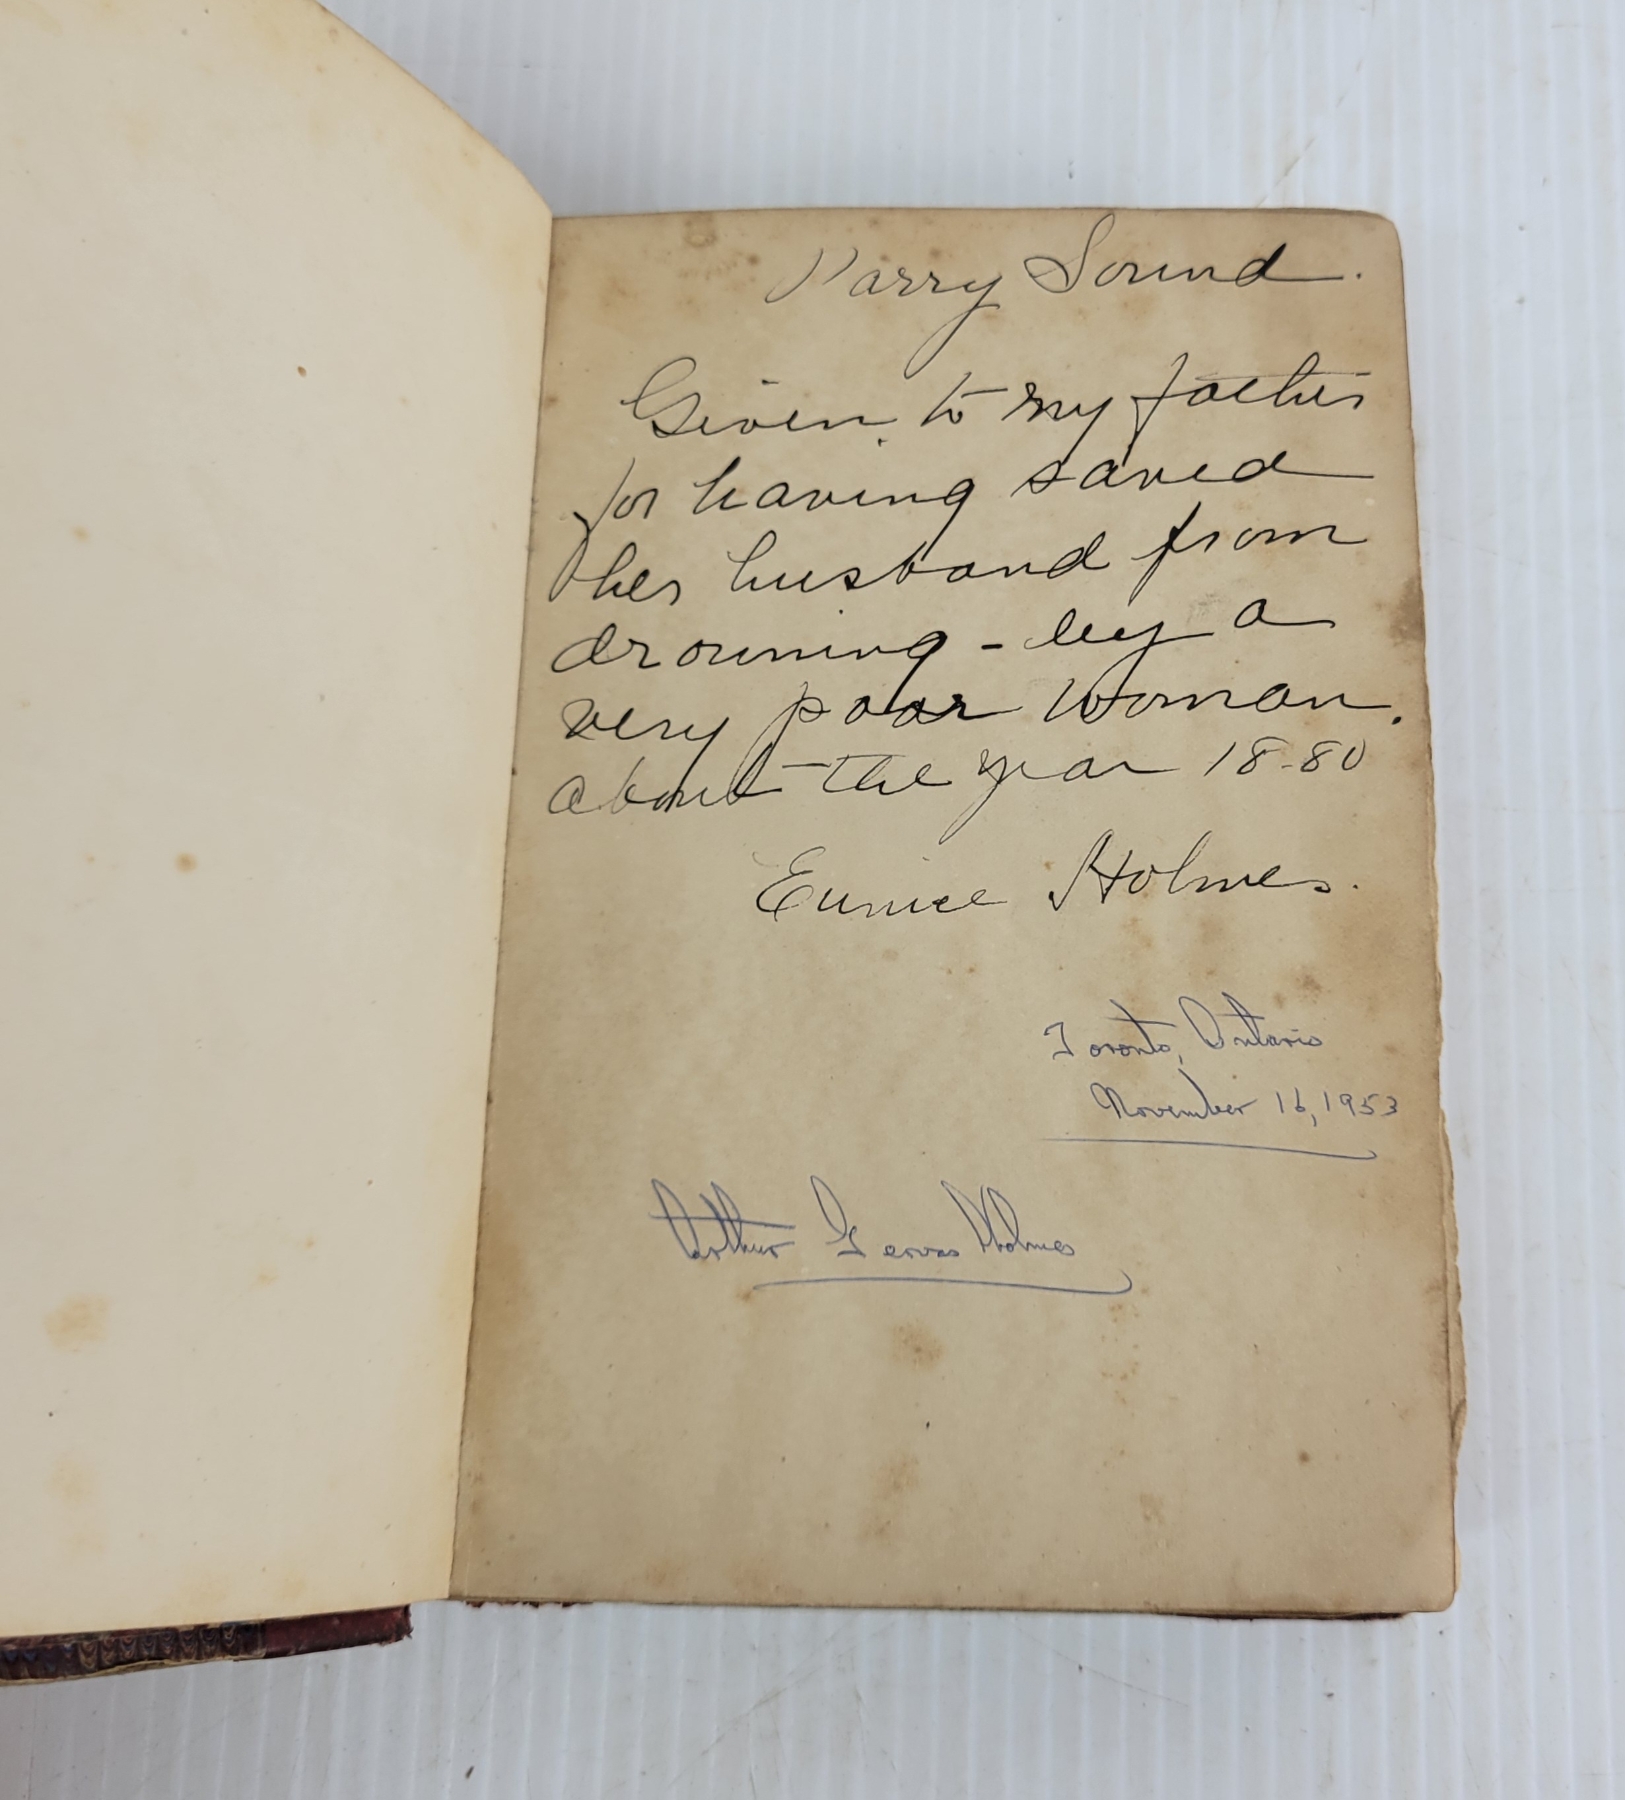 Parry Sound.
Given to my father
for having saved
her husband from
drowning - by a
very poor woman.
about the year 18-80
Eunice Holmes.
Toronto, Ontario
November 16, 1953
Arthur Gervas Holmes